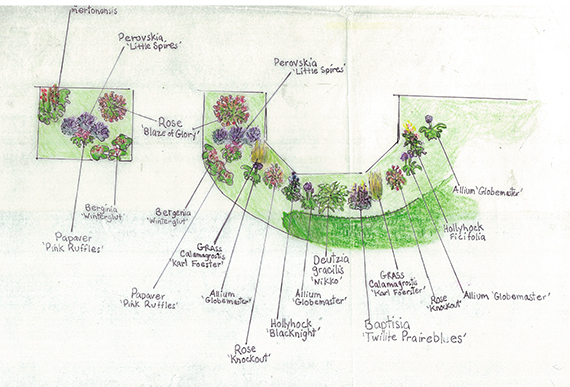 merionensis
Perovskia,
'Little Spires'
Perovskia
'Little Spires'
Rose
'Blaze of Glory'
Berginia
'Winterglut'
Papaver
'Pink Ruffles'
Bergenia
'Winterglut'
Papaver
'Pink Ruffles'
GRASS
Calamagrostis
'Karl Foester'
Allium
'Globemaster'
Rose
'Knockout'
Hollyhock
'Blacknight'
Allium
'Globemaster'
Deutzia
gracilis
'Nikko'
Baptisia
'Twilite Prairieblues'
GRASS
Calamagrostis
'Karl Foerster'
Rose
'Knockout'
Allium 'Globemaster'
Hollyhock
Ficifolia
Allium 'Globemaster'